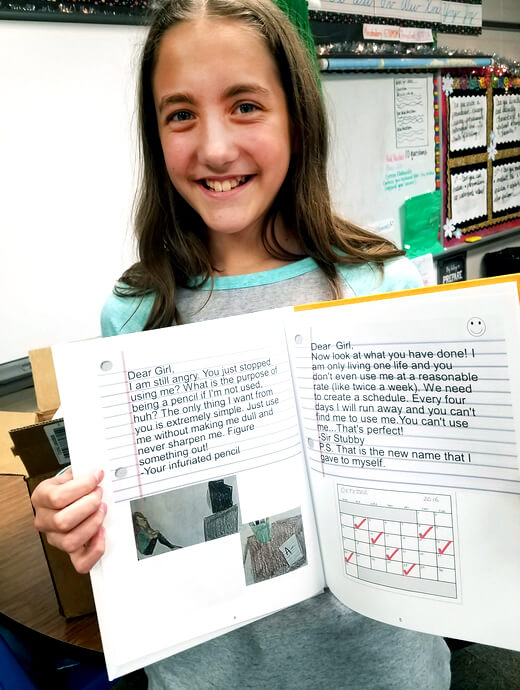 Dear Girl,
I am still angry. You just stopped
using me? What is the purpose of
being a pencil if I'm not used,
huh? The only thing I want from
you is extremely simple. Just use
me without making me dull and
never sharpen me. Figure
something out!
-Your infuriated pencil
A-
Dear Girl,
Now look at what you have done! I
am only living one life and you
don't even use me at a reasonable
rate (like twice a week). We need
to create a schedule. Every four
days I will run away and you can't
find me to use me.You can't use
me...That's perfect!
-Sir Stubby
P.S. That is the new name that I
gave to myself.
OCTOBER 2016
PREPARE